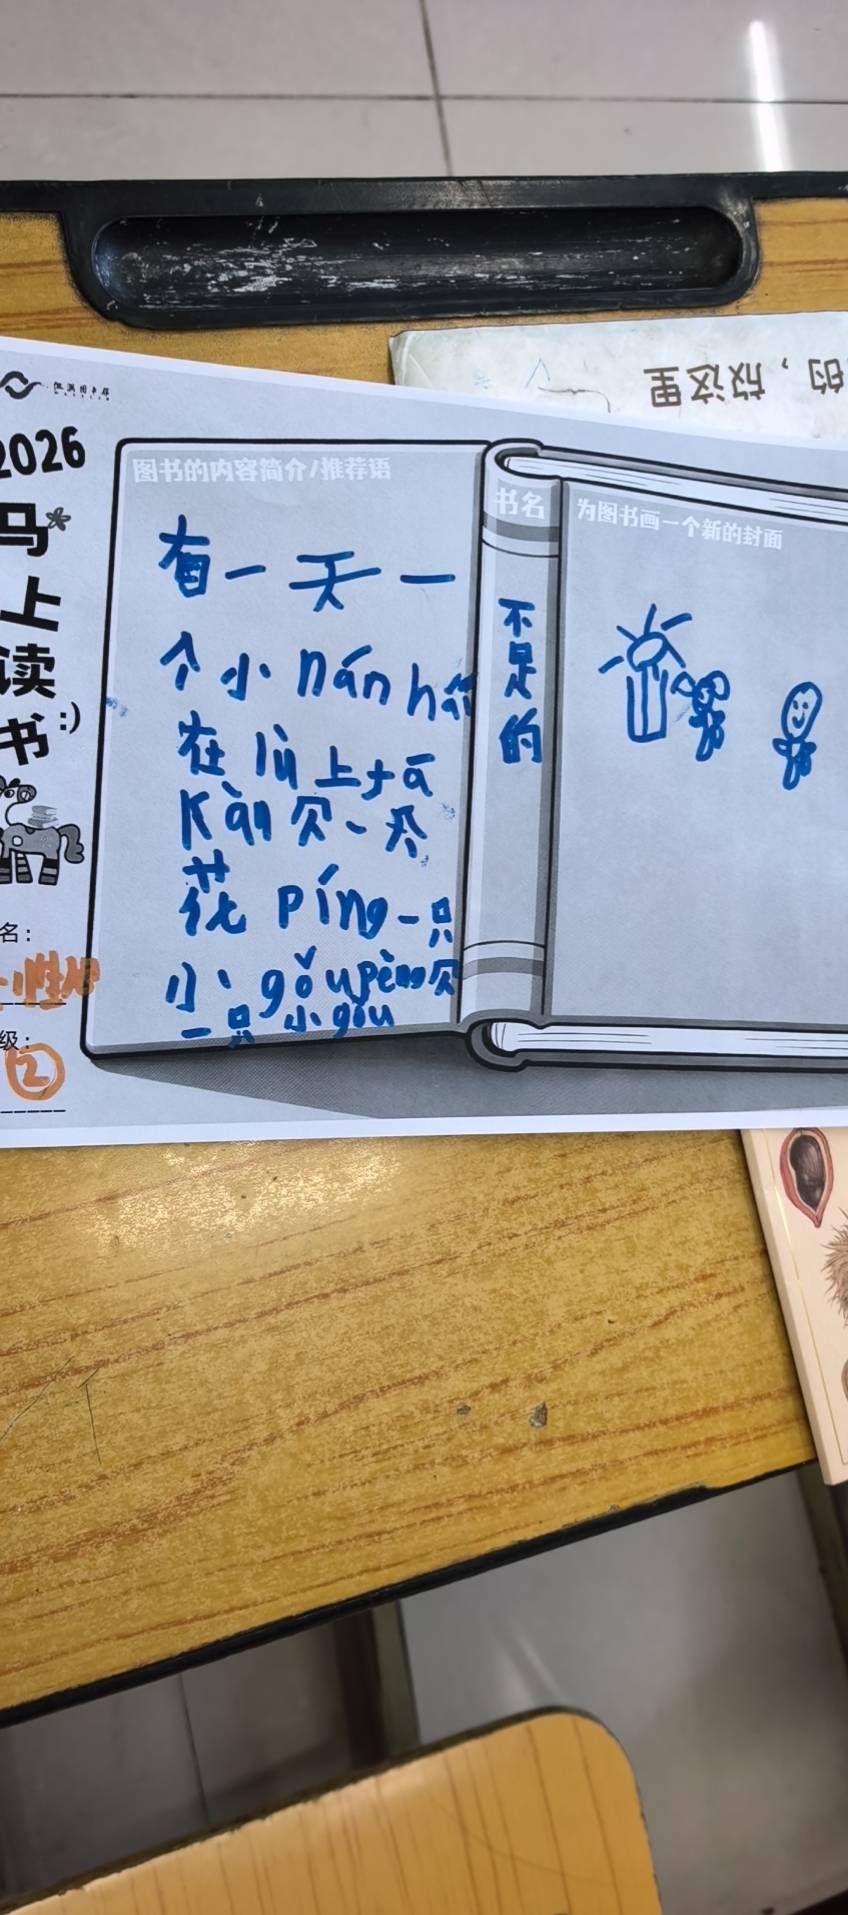 的，放这里
2026
马
上
读
书:)
图书的内容简介/推荐语
有一天一
个小nán h
在lù上tā
Kàn见一个
花píng一只
小gǒu pèng见
一只小gǒu
书名
不是的
为图书画一个新的封面
名：
级：
②